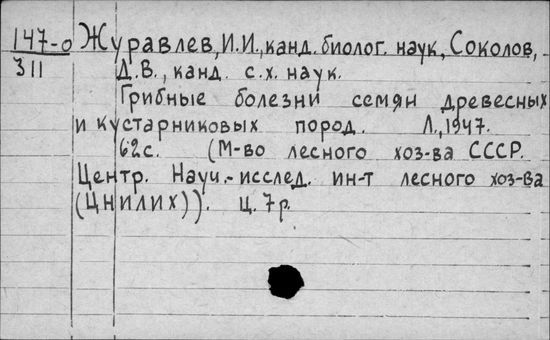 147-0 Журавлев, И.И., канд. биолог. наук, Соколов,
311 Д.В., канд. с.х. наук.
Грибные болезни семян древесных
и кустарниковых пород. Л., 1947.
62с. (М-во лесного хоз-ва СССР.
Центр. Науч.-исслед. ин-т лесного хоз-ва
(ЦНИЛИХ)). Ц. 7 р.